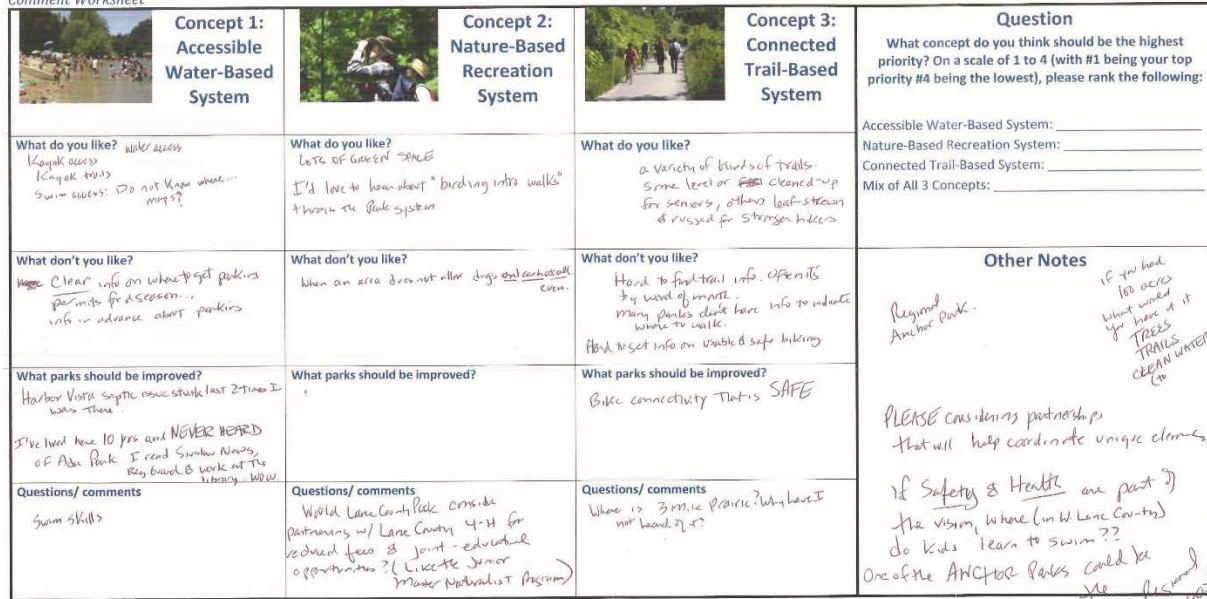 Comment Worksheet
Concept 1:
Accessible
Water-Based
System
What do you like? Water access
Kayak access
Kayak trails
Swim access: Do not know where...
maps?
What don't you like?
Clear info on where to get parking
permits for a season...
info in advance about parking
What parks should be improved?
Harbor Vista septic issue stunk last 2 times I
was there.
I've lived here 10 yrs and NEVER HEARD
of Ada Park I read Siuslaw News,
Reg. Guard & work at the
library. WOW.
Questions/ comments
Swim skills
Concept 2:
Nature-Based
Recreation
System
What do you like?
LOTS OF GREEN SPACE
I'd love to hear about "birding intro walks"
through the Park system
What don't you like?
When an area does not allow dogs on leash at all
even.
What parks should be improved?
Questions/ comments
Would Lane County Park consider
partnering w/ Lane County 4-H for
reduced fees & joint-educational
opportunities? (Like the Junior
Master Naturalist Program)
Concept 3:
Connected
Trail-Based
System
What do you like?
a variety of kinds of trails.
Some level or cleaned-up
for seniors, others leaf-strewn
& rugged for stronger hikers
What don't you like?
Hard to find trail info. Often it's
by word of mouth.
Many parks don't have info to indicate
where to walk.
Hard to get info on usable & safe biking
What parks should be improved?
Bike connectivity that is SAFE
Questions/ comments
Where is 3 mile Prairie? Why have I
not heard of it?
Question
What concept do you think should be the highest
priority? On a scale of 1 to 4 (with #1 being your top
priority #4 being the lowest), please rank the following:
Accessible Water-Based System:
Nature-Based Recreation System:
Connected Trail-Based System:
Mix of All 3 Concepts:
Other Notes
Regional
Anchor Park.
If you had
100 acres
what would
you have it
TREES
TRAILS
CLEAN WATER
(to
PLEASE considering partnerships
that will help coordinate unique
If Safety & Health are part of
the vision, where (in W. Lane County)
do kids learn to swim??
One of the ANCHOR Parks could be
the Regional